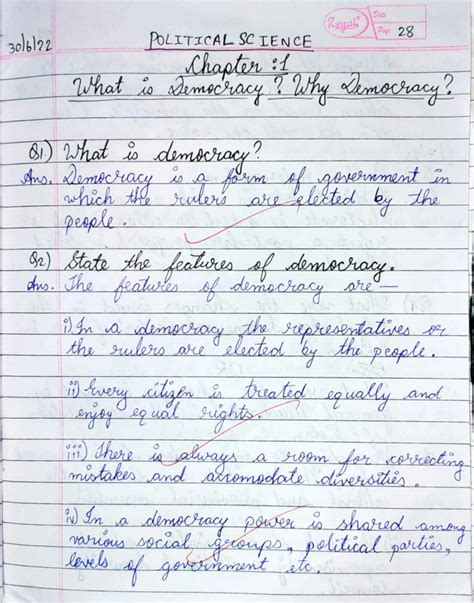 Regal
Date
Page 28
30/6/22 POLITICAL SCIENCE
Chapter :1
What is Democracy? Why Democracy?
Q1) What is democracy?
Ans. Democracy is a form of government in
which the rulers are elected by the
people.
Q2) State the features of democracy.
Ans. The features of democracy are —
i) In a democracy the representatives or
the rulers are elected by the people.
ii) Every citizen is treated equally and
enjoy equal rights.
iii) There is always a room for correcting
mistakes and acromodate diversities.
iv) In a democracy power is shared among
various social groups, political parties,
levels of government etc.